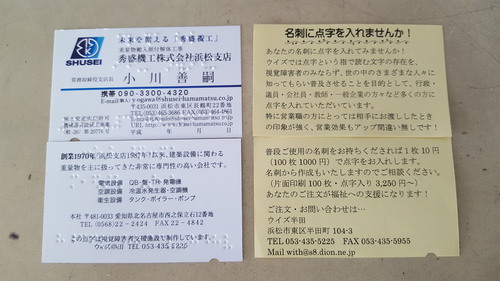 未来を鍛える「秀盛機工」
SHUSEI
重量物搬入据付解体工事
秀盛機工株式会社浜松支店
常務取締役支店長
小川善嗣
携帯 090-3300-4320
E-mail y-ogawa@shuseihamamatsu.co.jp
URL http://www.shuseihamamatsu.co.jp
平成 年 月 日
創業1970年(浜松支店1987年)以来、建築設備に関わる
重量物を主に扱ってきた非常に専門性の高い会社です。
電気設備 QB・盤・TR・発電機
空調設備 冷温水発生器・空調機
衛生設備 タンク・ボイラー・ポンプ
本社 〒481-0033 愛知県北名古屋市西之保立石12番地
TEL (0568)22-2424
この点字は視覚障害者支援施設で制作しています。
名刺に点字を入れませんか!
あなたの名刺に点字を入れてみませんか!
ウイズでは点字という指で読む文字の存在を、
視覚障害者のみならず、世の中のさまざまな人々に
知ってもらい普及させることを目的として、行政・
議員・会社員・教師・一般企業の方々など多くの方に
点字を入れていただいています。
特に営業職の方にとっては相手にお渡ししたとき
の印象が強く、営業効果もアップ間違い無しです!
普段ご使用の名刺をお持ちくだされば1枚10円
(100枚1000円)で点字をお入れします。
名刺から作成もいたしますのでご相談ください。
(片面印刷100枚・点字入り3,250円~)
あなたのご注文が福祉への支援になります!
ご注文・お問い合わせは…
ウイズ半田
浜松市東区半田町104-3
TEL 053-435-5225 FAX 053-435-5955
Mail with@s8.dion.ne.jp